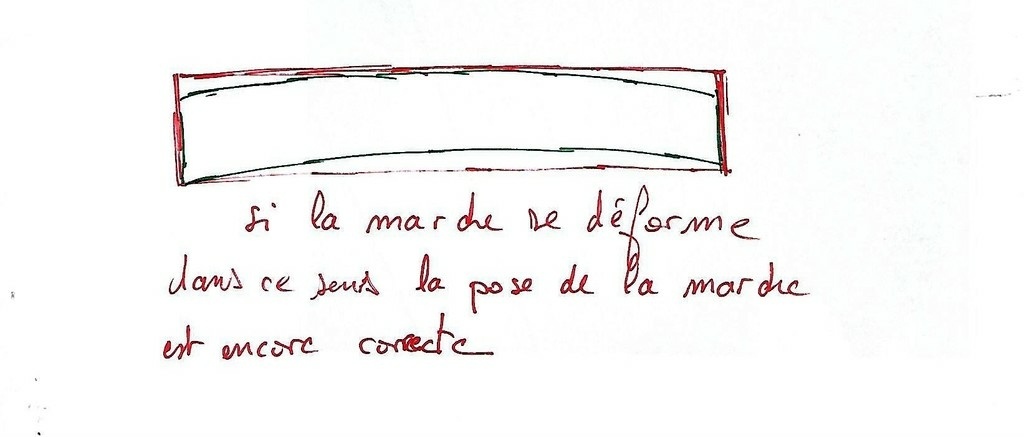 si la marche se déforme
dans ce sens la pose de la marche
est encore correcte